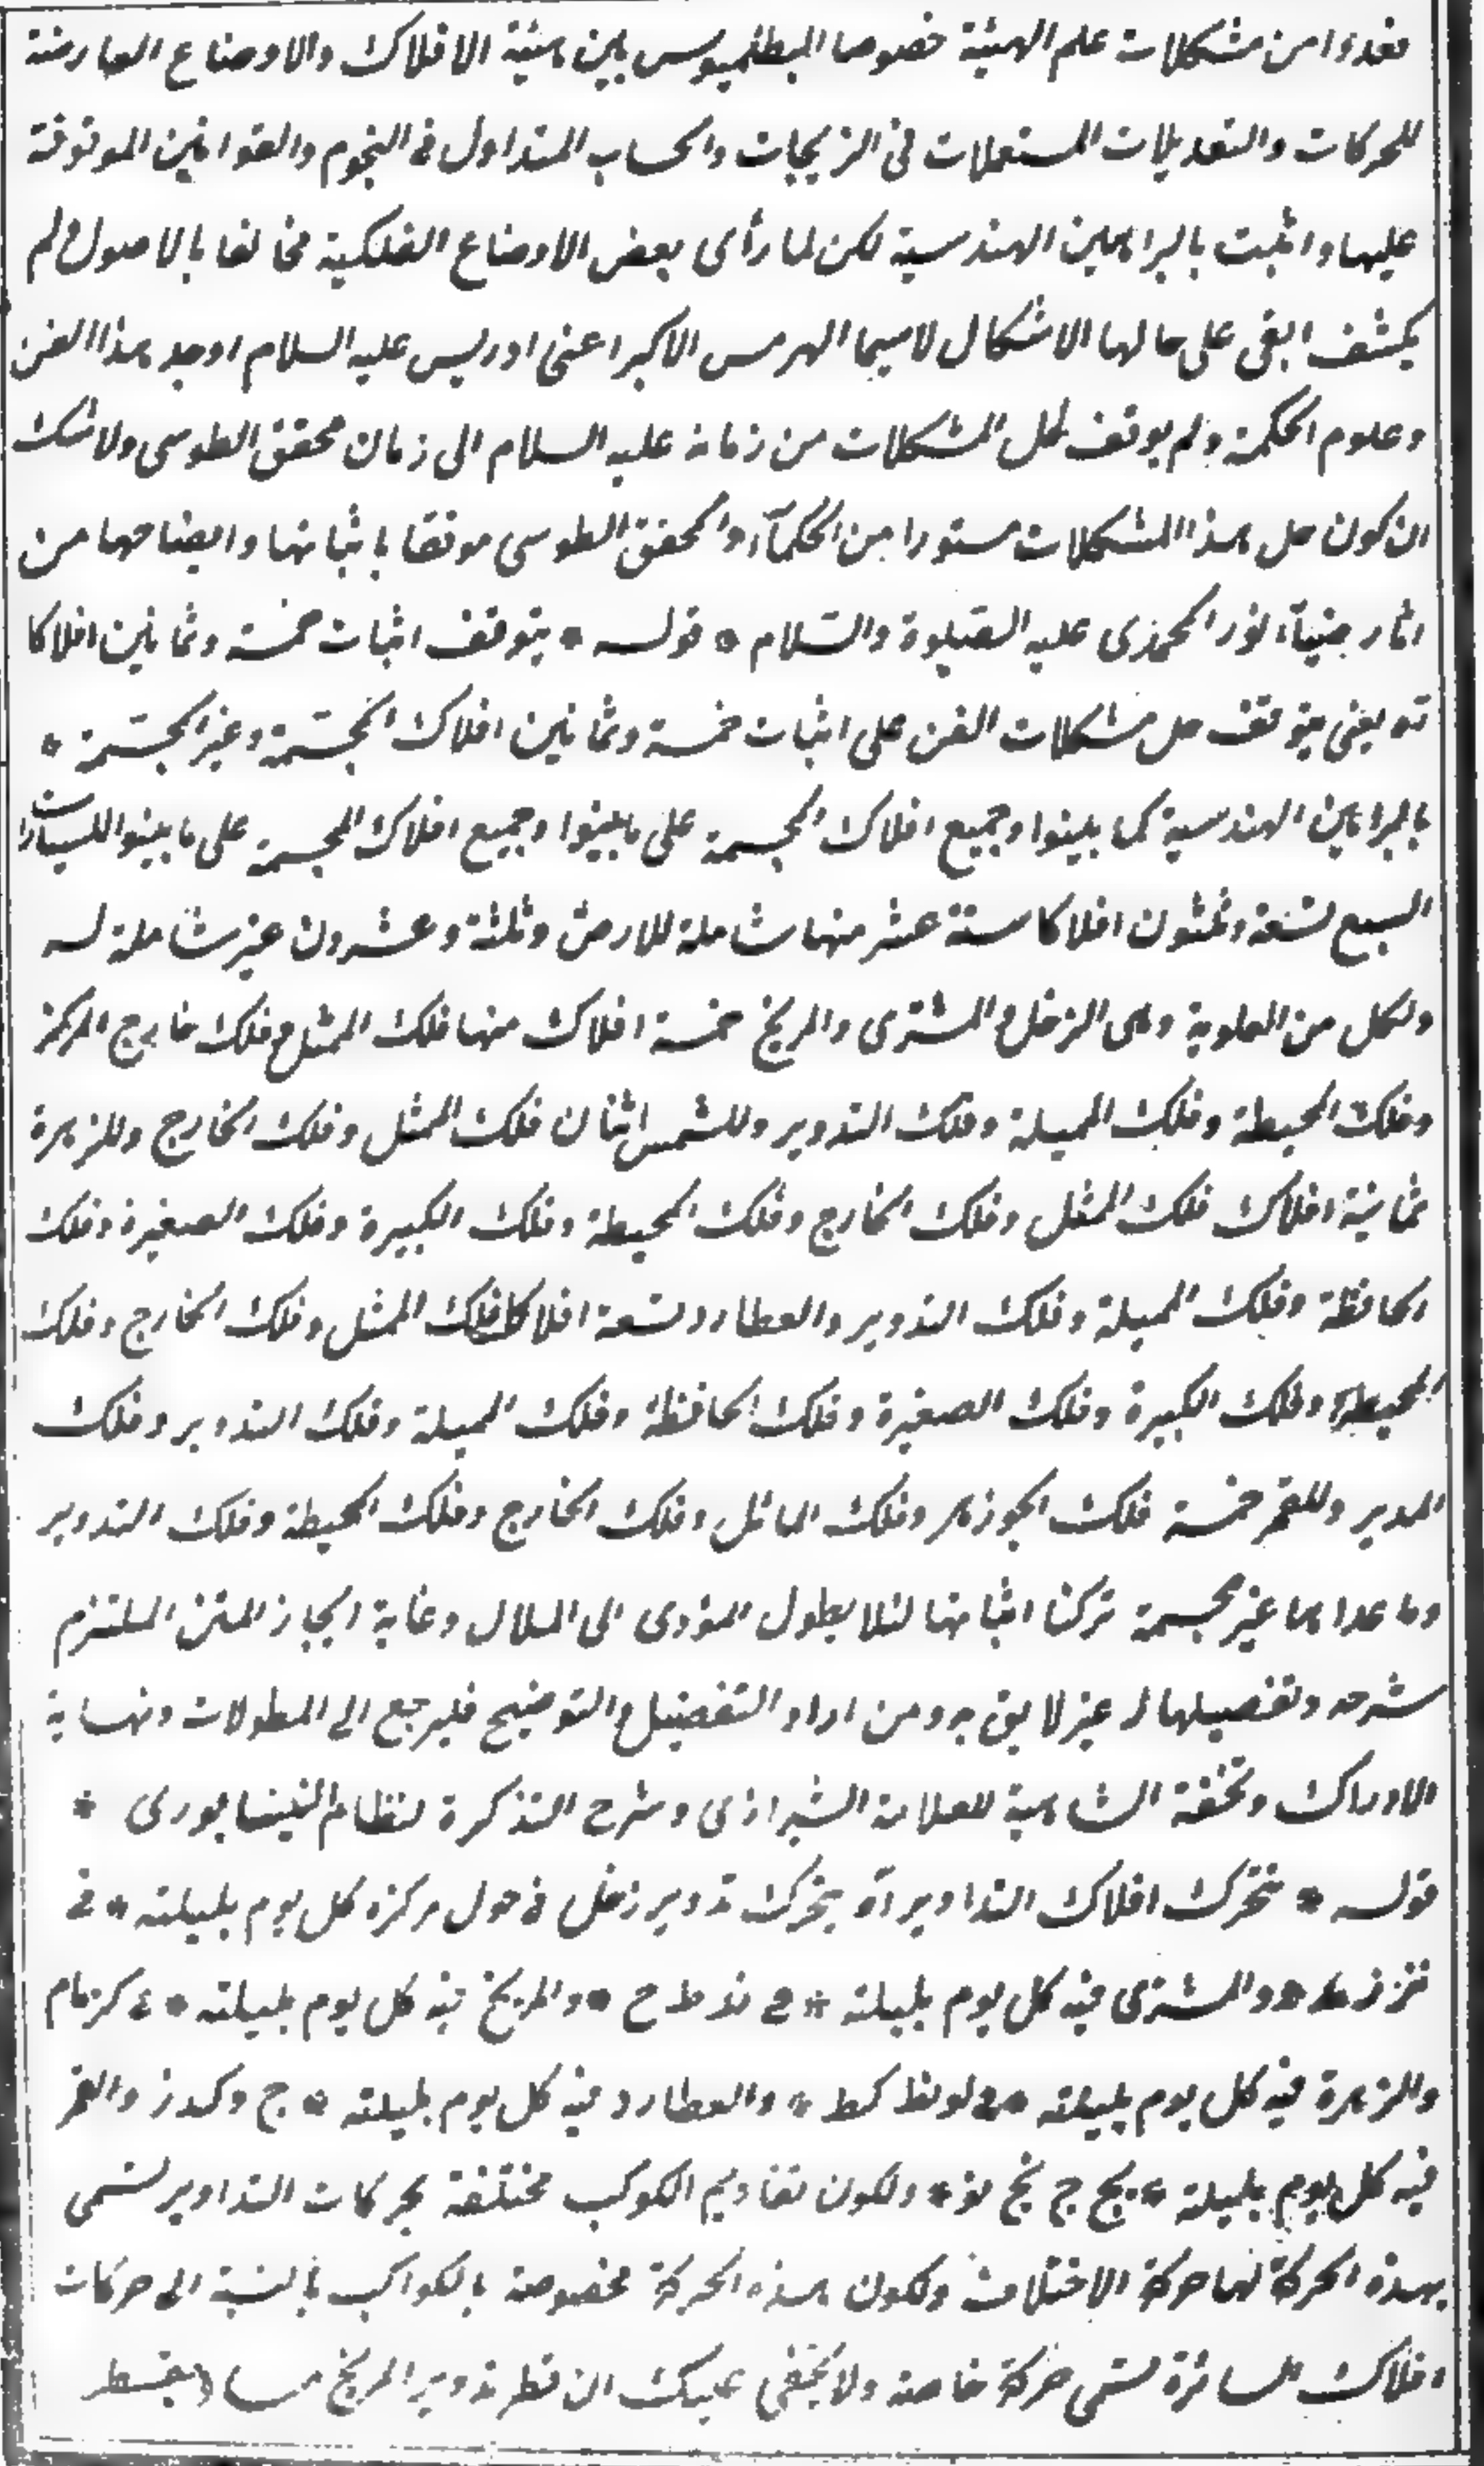 من مشكلات علم الهيئة خصوصا البطلميوس بين هيئة الافلاك والاوضاع العارضة
للحركات والتعديلات المستعملات فى الزيجات والحساب المتداول فى النجوم والقوانين الموقوفة
عليها واثبت بالبراهين الهندسية لكن لما رأى بعض الاوضاع الفلكية مخالفا بالاصول ولم
يكشف ابقى على حالها الاشكال لاسيما الهرمس الاكبر اعنى ادريس عليه السلام اوجد هذا الفن
وعلوم الحكمة ولم يوقف لحل المشكلات من زمانه عليه السلام الى زمان محقق الطوسى ولا شك
ان كون حل هذا المشكلات مستورا من الحكمآء والمحقق الطوسى موفقا باثباتها وايضاحها من
اثار ضيآء نور المحمدى عليه الصلوة والسلام * قوله * يتوقف اثبات خمسة وثمانين افلاكا
آه يعنى يتوقف حل مشكلات الفن على اثبات خمسة وثمانين افلاك المجسّمة وغير المجسّمة *
بالبراهين الهندسية كما بينوا وجميع افلاك المجسمة على ما بينوا وجميع افلاك المجسمة على ما بينوا للسيارات
السبع تسعة وثلثون افلاكا ستة عشر منها شاملة للارض وثلثة وعشرون غير شاملة له
ولكل من العلوية وهى الزحل والمشترى والمريخ خمسة افلاك منها فلك الممثل وفلك خارج المركز
وفلك المحيطة وفلك المميلة وفلك التدوير وللشمس اثنان فلك الممثل وفلك الخارج وللزهرة
ثمانية افلاك فلك الممثل وفلك الخارج وفلك المحيطة وفلك الكبيرة وفلك الصغيرة وفلك
الحافظة وفلك المميلة وفلك التدوير والعطارد تسعة افلاكا فلك الممثل وفلك الخارج وفلك
المحيطة وفلك الكبيرة وفلك الصغيرة وفلك الحافظة وفلك المميلة وفلك التدوير وفلك
المدير وللقمر خمسة فلك الجوزهر وفلك المائل وفلك الخارج وفلك المحيطة وفلك التدوير
وما عداها غير مجسمة تركنا اثباتها لئلا يطول المؤدى الى الملال وغاية ايجاز المتن المستلزم
شرحه وتفصيلها له غير لايق به ومن اراد التفصيل والتوضيح فليرجع الى المطولات ونهاية
الادراك وتحفة الشاهية للعلامة الشيرازى وشرح التذكرة لنظام النيسابورى *
قوله * تتحرك افلاك التداوير آه يتحرك تدوير زحل فى حول مركزه كل يوم بليلته * فى
والمشترى فيه كل يوم بليلته * نذ ط ح * والمريخ فيه كل يوم بليلته *
وللزهرة فيه كل يوم بليلته * لو نط كط * والعطارد فيه كل يوم بليلته * ج و كد ز والقمر
فيه كل يوم بليلته * يج ج نج نو * ولكون تقاويم الكوكب مختلفة بحركات التداوير تسمى
بهذه الحركة لها حركة الاختلاف ولكون هذه الحركة مخصوصة بالكواكب بالنسبة الى حركات
افلاك السائرة تسمى حركة خاصة ولا يخفى عليك ان قطر تدوير المريخ